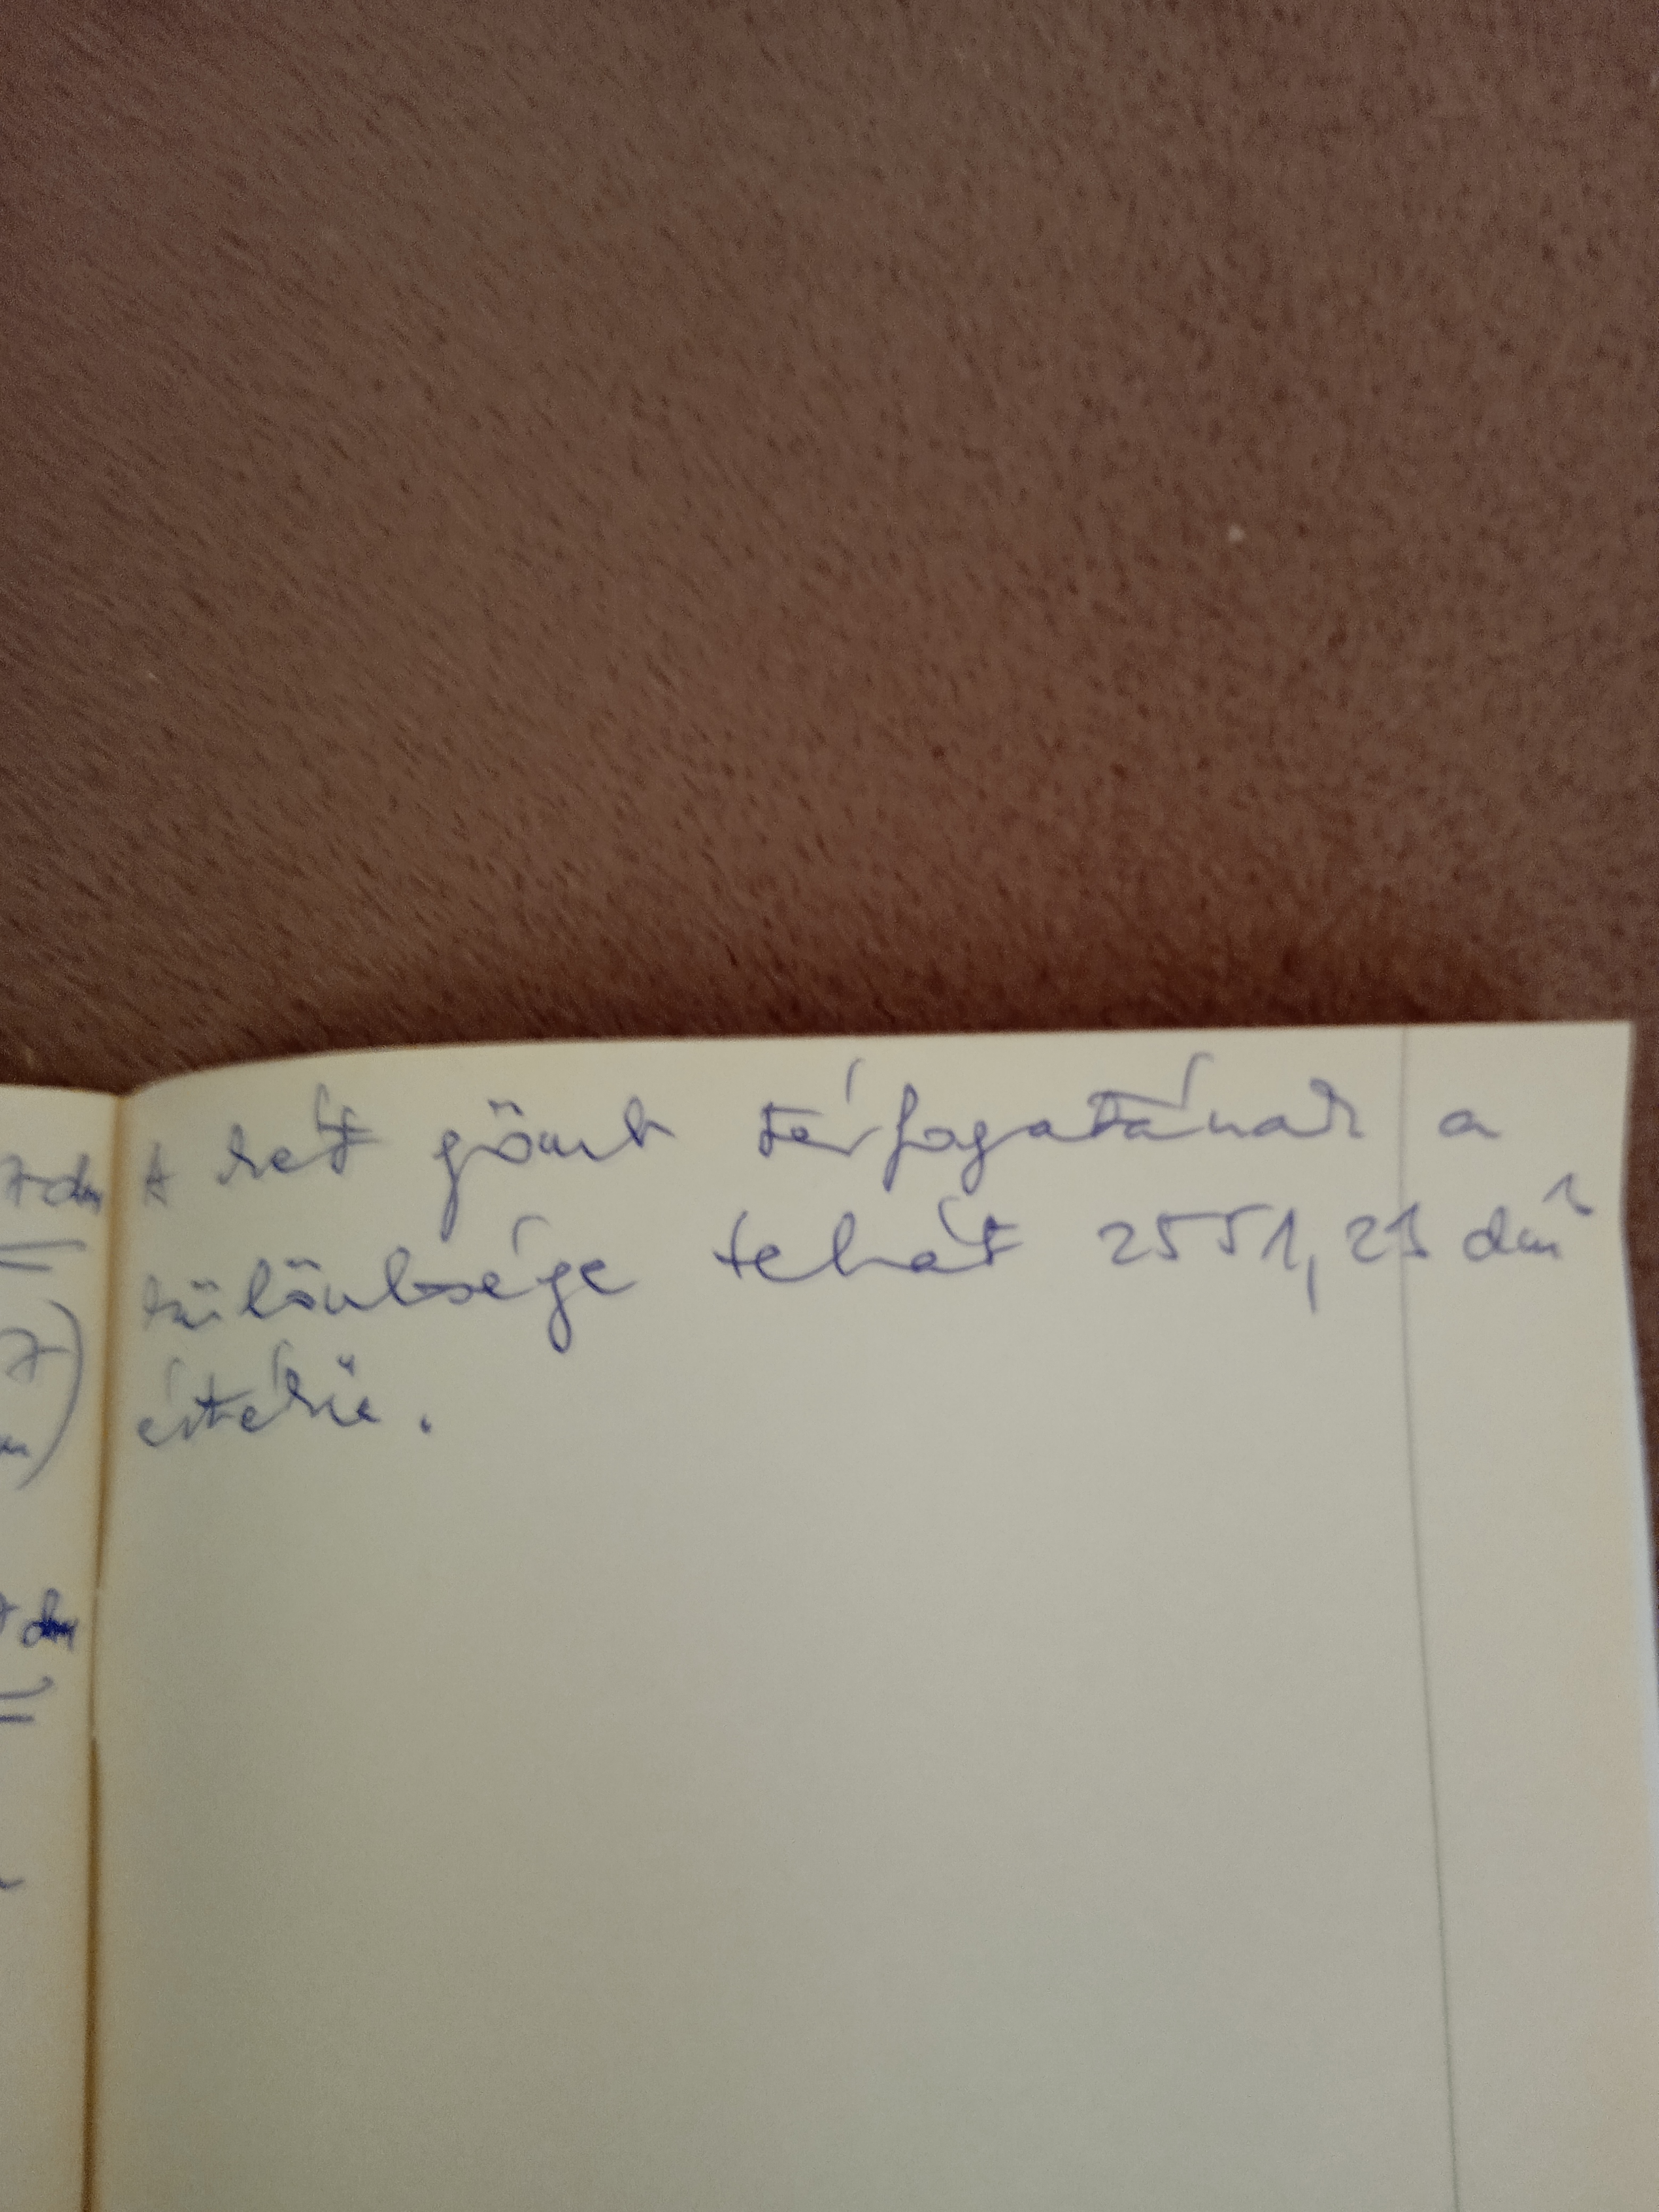 A két gömb térfogatának a
7 dm
különbsége tehát 2551, dm³
értékű.
7)
dm